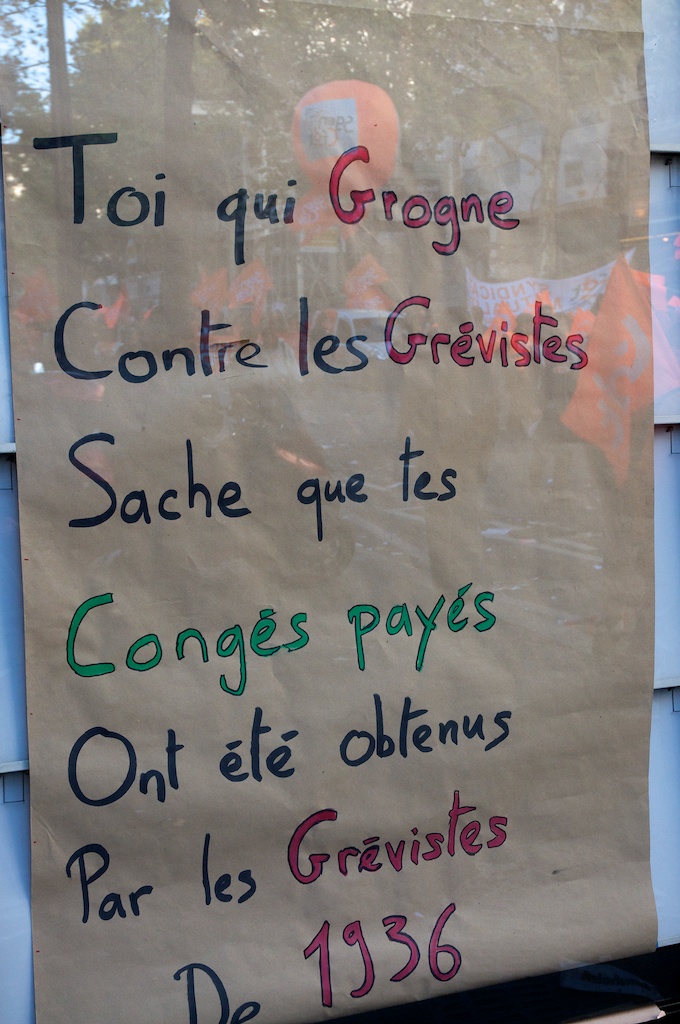 Toi qui Grogne
Contre les Grévistes
Sache que tes
Congés payés
Ont été obtenus
Par les Grévistes
De 1936